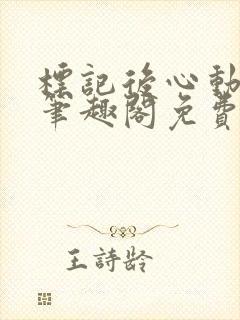 標記後心動
筆趣閣免費
王詩齡